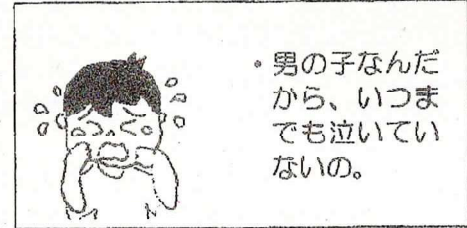 ・男の子なんだ
から、いつま
でも泣いてい
ないの。